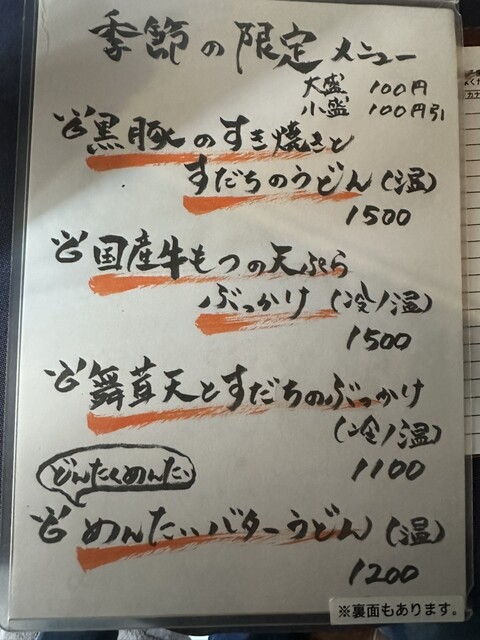 季節の限定メニュー
大盛 100円
小盛 100円引
黒豚のすき焼きと
すだちのうどん(温)
1500
国産牛もつの天ぷら
ぶっかけ(冷/温)
1500
舞茸天とすだちのぶっかけ
(冷/温)
1100
どんたくめんたい
めんたいバターうどん(温)
1200
※裏面もあります。